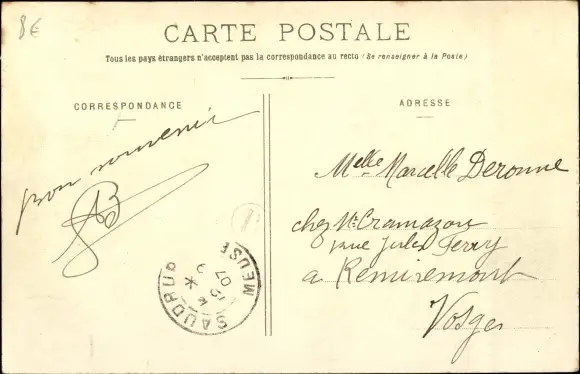 8€
CARTE POSTALE
Tous les pays étrangers n'acceptent pas la correspondance au recto (Se renseigner à la Poste)
CORRESPONDANCE
bon souvenir
ADRESSE
Melle Marcelle Deronne
chez Mr Cramazou
rue Jules Ferry
a Remiremont
Vosges
SAUDRUPT
MEUSE
07